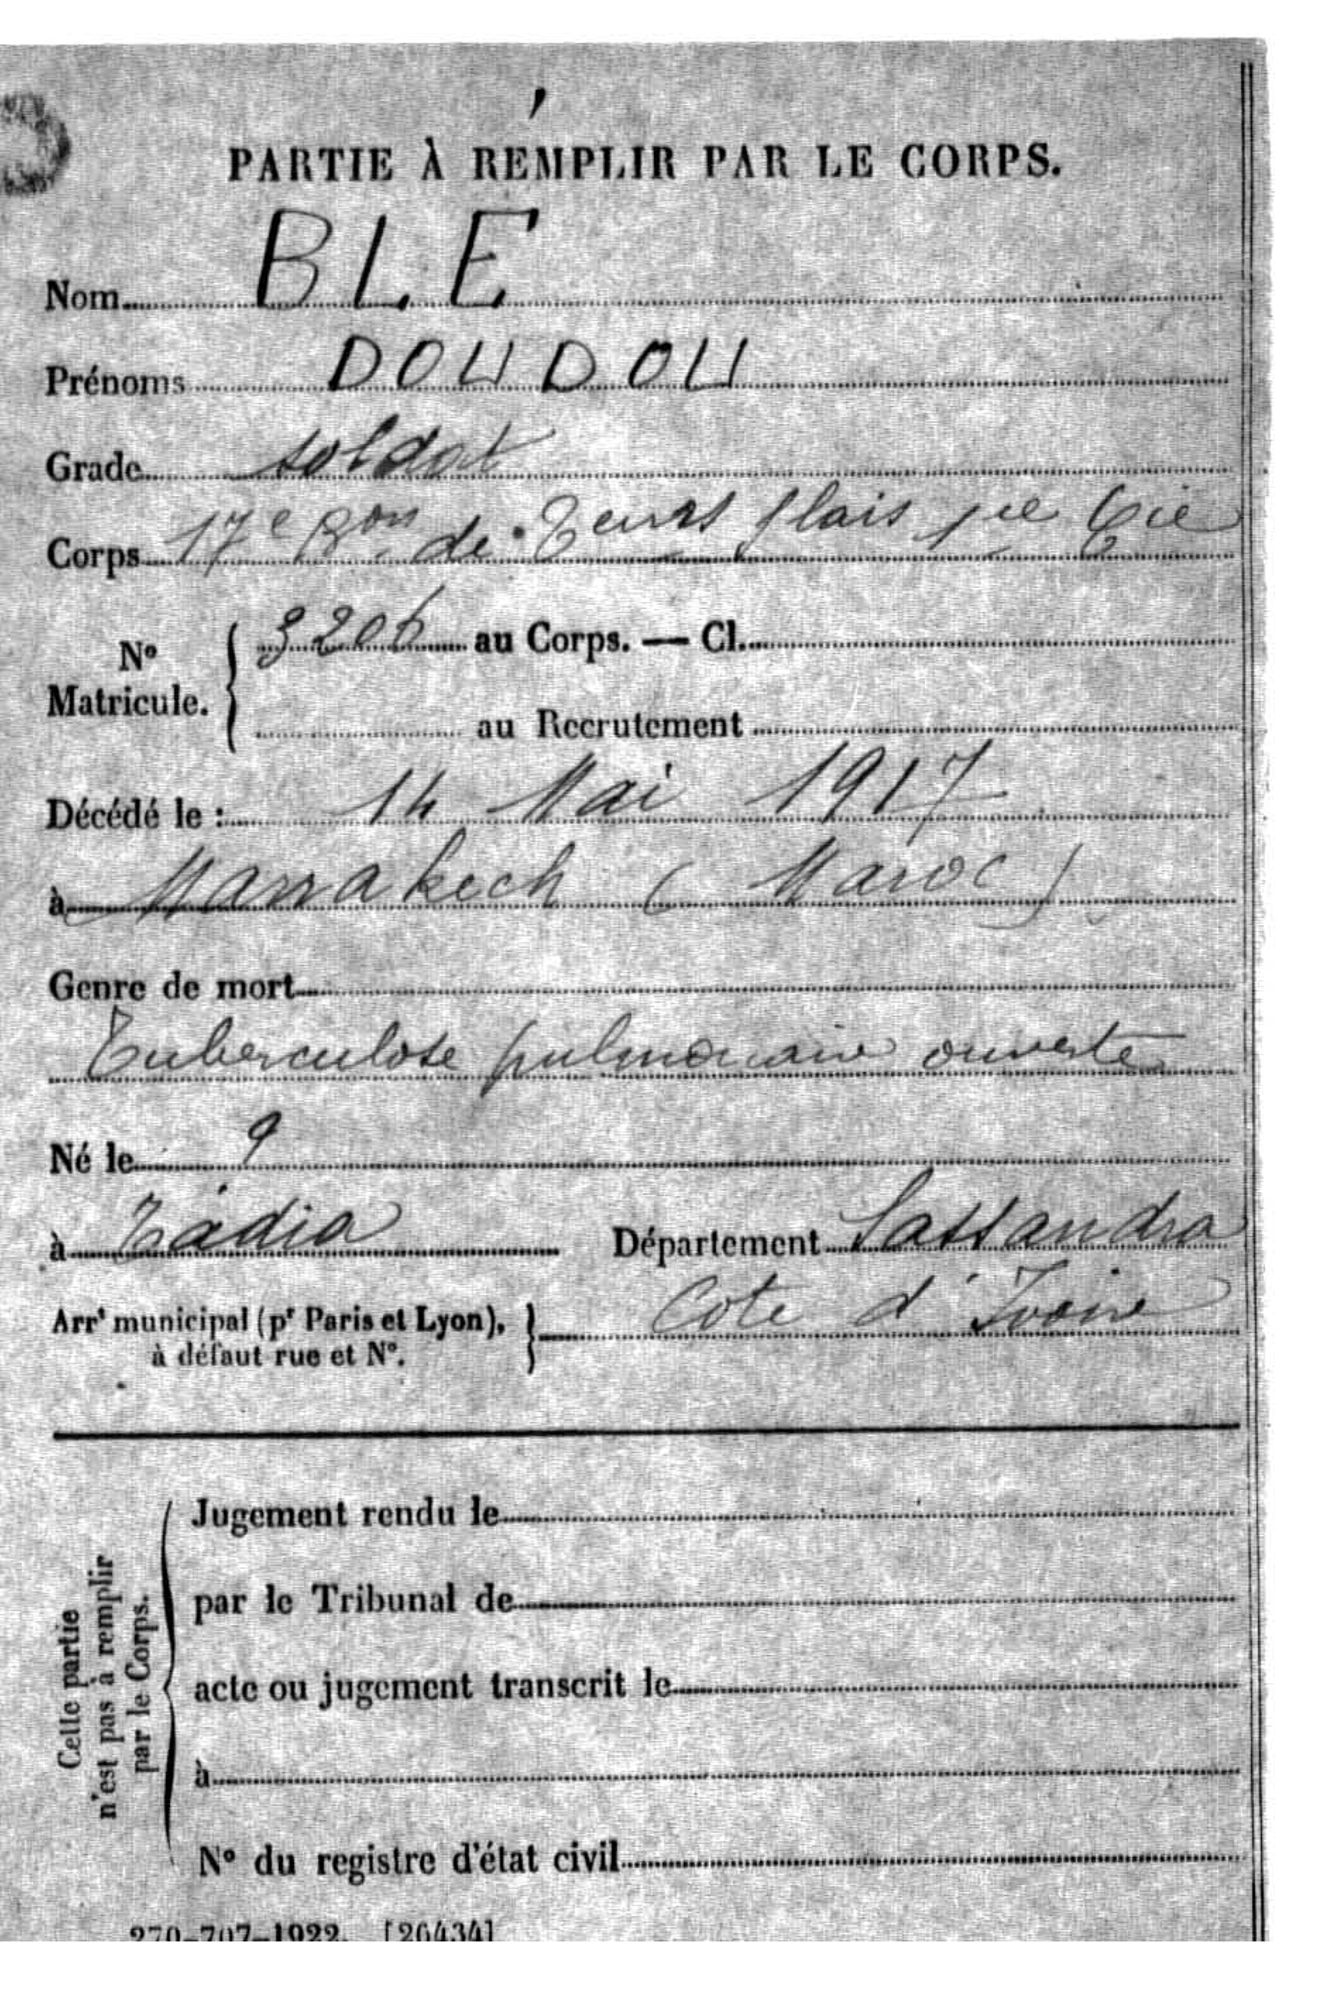 PARTIE À REMPLIR PAR LE CORPS.
Nom BLÉ
Prénoms DOUDOU
Grade soldat
Corps 17e Bon de Teurs Slais 1re Cie
N° Matricule. 3206 au Corps. — Cl.
au Recrutement
Décédé le : 14 Mai 1917
à Marrakech (Maroc)
Genre de mort
Tuberculose pulmonaire ouverte
Né le ?
à Zadia Département Sassandra
Arrt municipal (pr Paris et Lyon), à défaut rue et N°. Cote d'Ivoire
Cette partie n'est pas à remplir par le Corps.
Jugement rendu le
par le Tribunal de
acte ou jugement transcrit le
à
N° du registre d'état civil
270-707-1922. [26434]